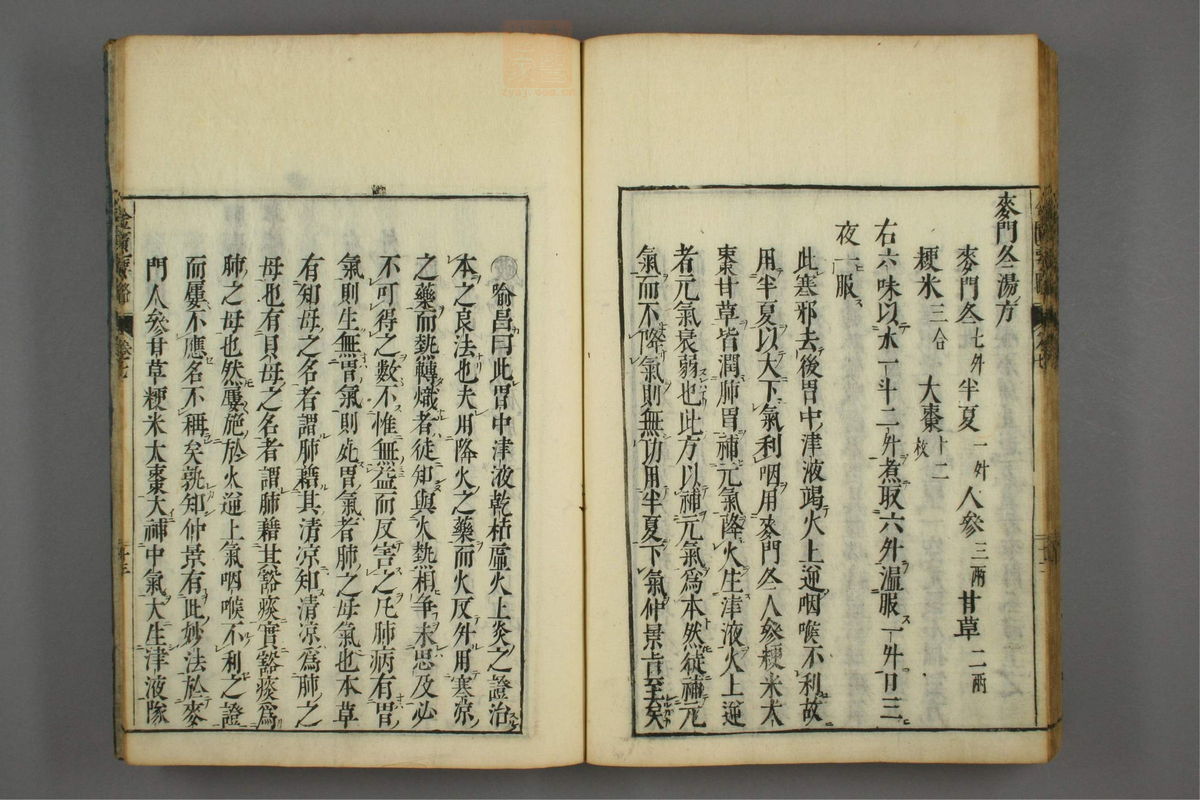 麥門冬湯方
麥門冬七升半夏一升人參三兩甘草二兩
粳米三合 大棗十二枚
右六味以水一斗二升煮取六升溫服一升日三
夜一服
此塞邪去後胃中津液竭火上逆咽喉不利故
用半夏以大下氣利咽用麥門冬人參粳米大
棗甘草皆潤肺胃補元氣降火生津液火上逆
者元氣衰弱也此方以補元氣為本然徒補元
氣而不降氣則無功用半夏下氣仲景旨至矣
喻昌曰此胃中津液乾枯虛火上炎之證治
本之良法也夫用降火之藥而火反升用寒涼
之藥而熱轉熾者徒知與火熱相爭未思及必
不可得之數不惟無益而反害之凡肺病有胃
氣則生無胃氣則死胃氣者肺之母氣也本草
有知母之名者謂肺藉其清涼知清涼為肺之
母也有貝母之名者謂肺藉其豁痰實豁痰為
肺之母也然屢施於火逆上氣咽喉不利之證
而屢不應名不稱矣孰知仲景有此妙法於麥
門人參甘草粳米大棗大補中氣大生津液隊
卷七